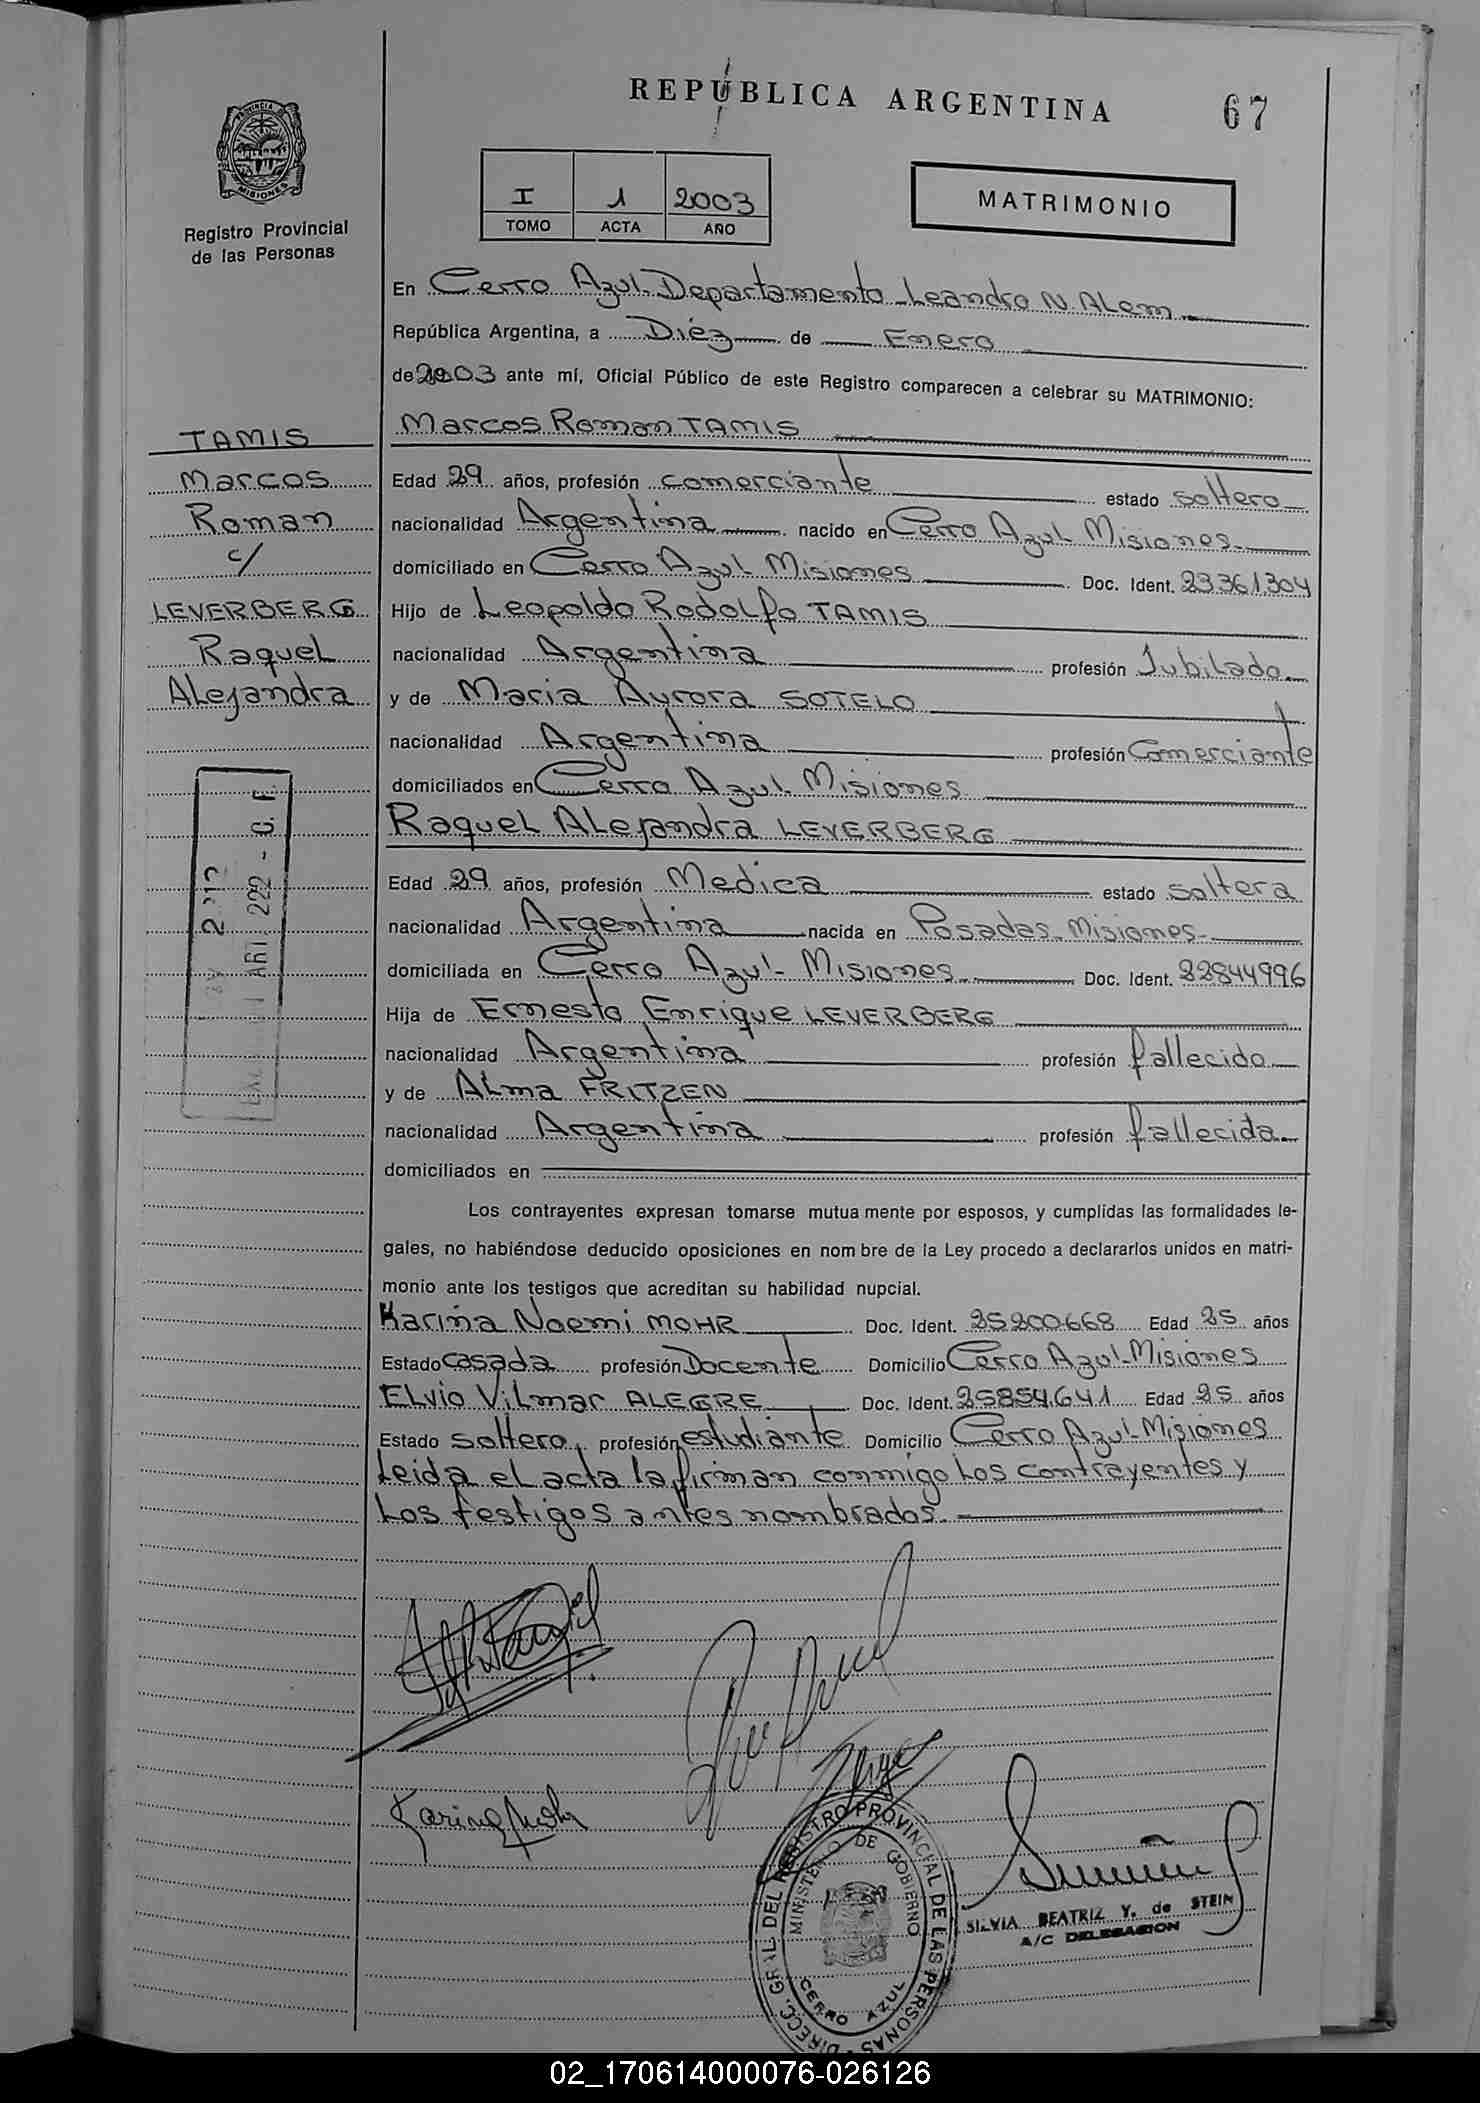 REPÚBLICA ARGENTINA
67
PROVINCIA DE
MISIONES
Registro Provincial
de las Personas
I 1 2003
TOMO ACTA AÑO
MATRIMONIO
En Cerro Azul Departamento Leandro N. Alem
República Argentina, a Diéz de Enero
de 2003 ante mí, Oficial Público de este Registro comparecen a celebrar su MATRIMONIO:
TAMIS
Marcos
Roman
c/
LEVERBERG
Raquel
Alejandra
Marcos Roman TAMIS
Edad 29 años, profesión comerciante estado soltero
nacionalidad Argentina nacido en Cerro Azul Misiones
domiciliado en Cerro Azul Misiones Doc. Ident. 23361304
Hijo de Leopoldo Rodolfo TAMIS
nacionalidad Argentina profesión Jubilado
y de Maria Aurora SOTELO
nacionalidad Argentina profesión Comerciante
domiciliados en Cerro Azul. Misiones
Raquel Alejandra LEVERBERG
Edad 29 años, profesión Medica estado soltera
nacionalidad Argentina nacida en Posadas Misiones
domiciliada en Cerro Azul- Misiones Doc. Ident. 22844996
Hija de Ernesto Enrique LEVERBERG
nacionalidad Argentina profesión fallecido
y de Alma FRITZEN
nacionalidad Argentina profesión fallecida
domiciliados en
ART 222 - C. F.
Los contrayentes expresan tomarse mutua mente por esposos, y cumplidas las formalidades le-
gales, no habiéndose deducido oposiciones en nom bre de la Ley procedo a declararlos unidos en matri-
monio ante los testigos que acreditan su habilidad nupcial.
Karina Noemi MOHR Doc. Ident. 25200668 Edad 25 años
Estado casada profesión Docente Domicilio Cerro Azul-Misiones
Elvio Vilmar ALEGRE Doc. Ident. 25854641 Edad 25 años
Estado soltero, profesión estudiante Domicilio Cerro Azul-Misiones
Leida el acta la firman conmigo los contrayentes y
los testigos antes nombrados.
Karina Mohr
DIRECC. GRAL. DEL REGISTRO PROVINCIAL DE LAS PERSONAS
MINISTERIO DE GOBIERNO
CERRO AZUL
SILVIA BEATRIZ Y. de STEIN
A/C DELEGACION
02_170614000076-026126